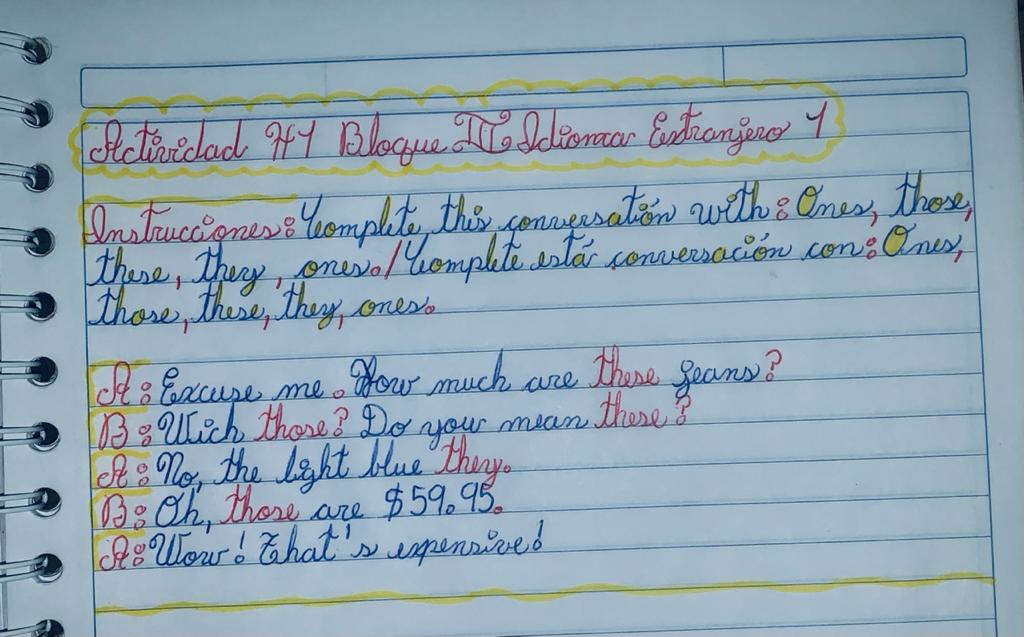 Actividad #1 Bloque II Idioma Extranjero 1
Instrucciones: Complete this conversatión with: Ones, those,
these, they, ones./Complete está conversación con: Ones,
those, these, they, ones.
A: Excuse me. How much are these jeans?
B: Wich those? Do you mean these?
A: No, the light blue they.
B: Oh, those are $59.95.
A: Wow! That's expensive!